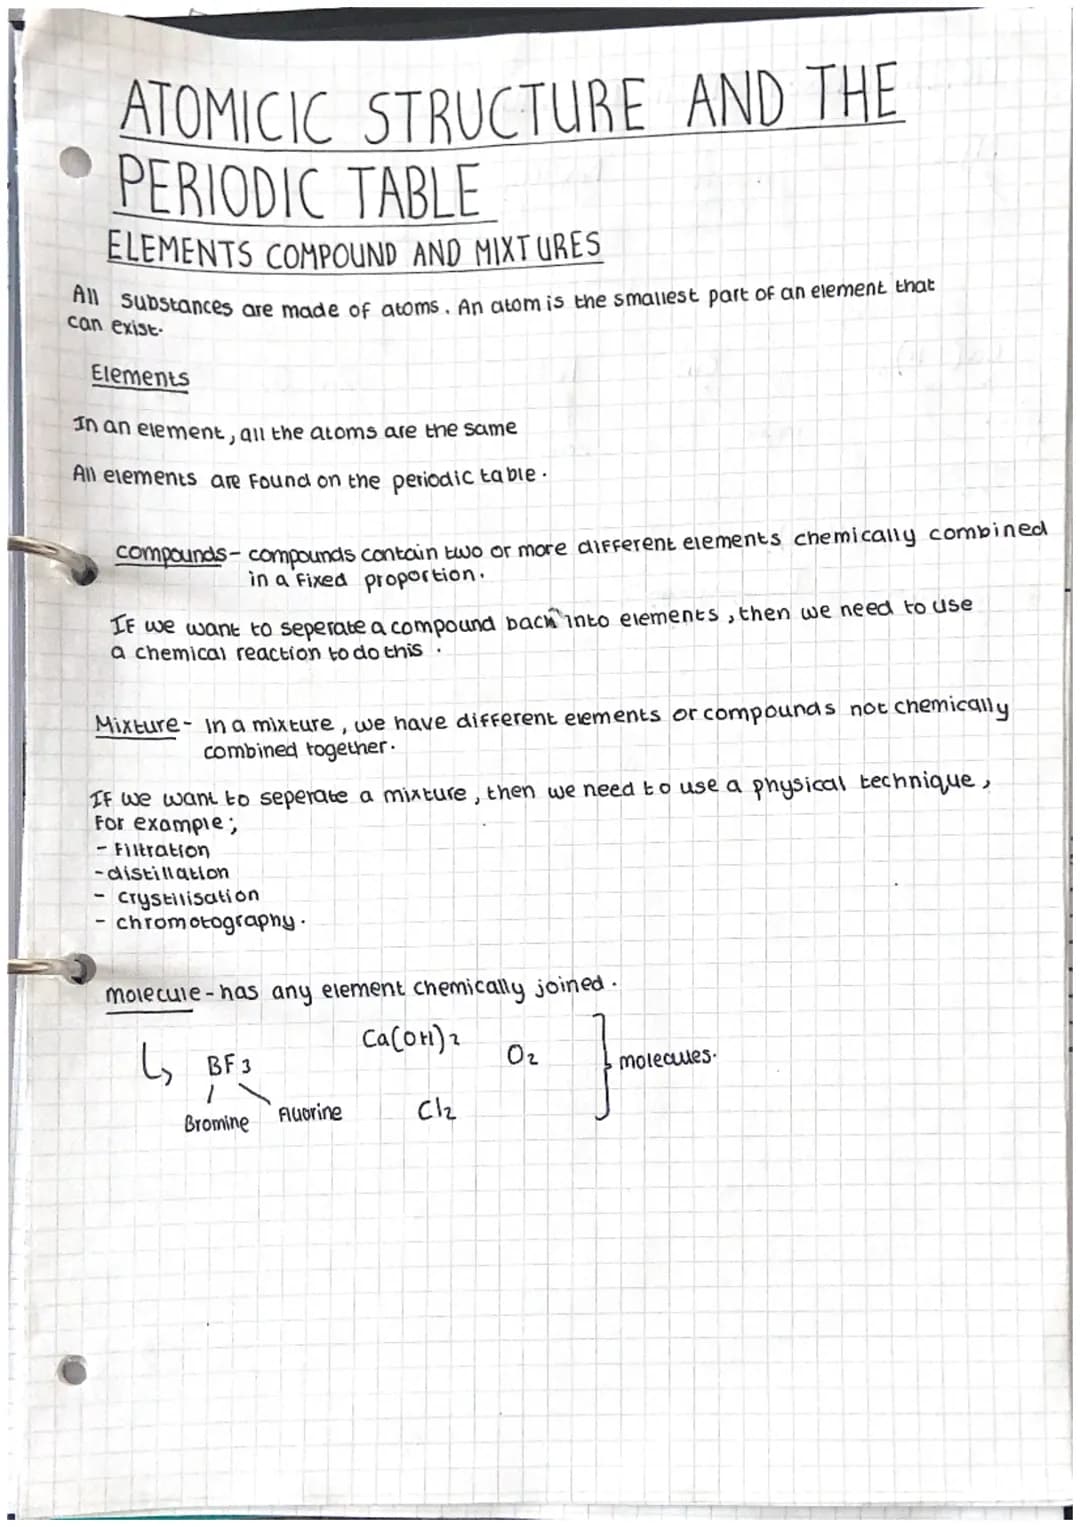 ATOMICIC STRUCTURE AND THE
PERIODIC TABLE
ELEMENTS COMPOUND AND MIXTURES
All substances are made of atoms. An atom is the smallest part of an element that
can exist.
Elements
In an element, all the atoms are the same
All elements are found on the periodic table.
compounds- compounds contain two or more different elements chemically combined
in a fixed proportion.
If we want to seperate a compound back into elements, then we need to use
a chemical reaction to do this.
Mixture- In a mixture, we have different elements or compounds not chemically
combined together.
If we want to seperate a mixture, then we need to use a physical technique,
For example;
- Filtration
- distillation
- crystilisation
- chromotography.
molecule - has any element chemically joined.
↳ BF3 Ca(OH)2 O2 } molecules.
Bromine Fluorine Cl2